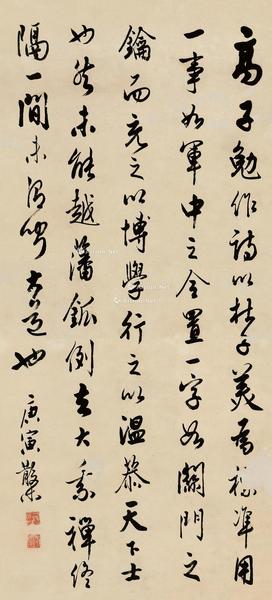 高子勉作詩以杜子美為標準用
一事如軍中之令置一字如關門之
鑰而充之以博學行之以溫恭天下士
也然未能越藩倒大乘禪終
隔一間未得聞大道也 庚寅